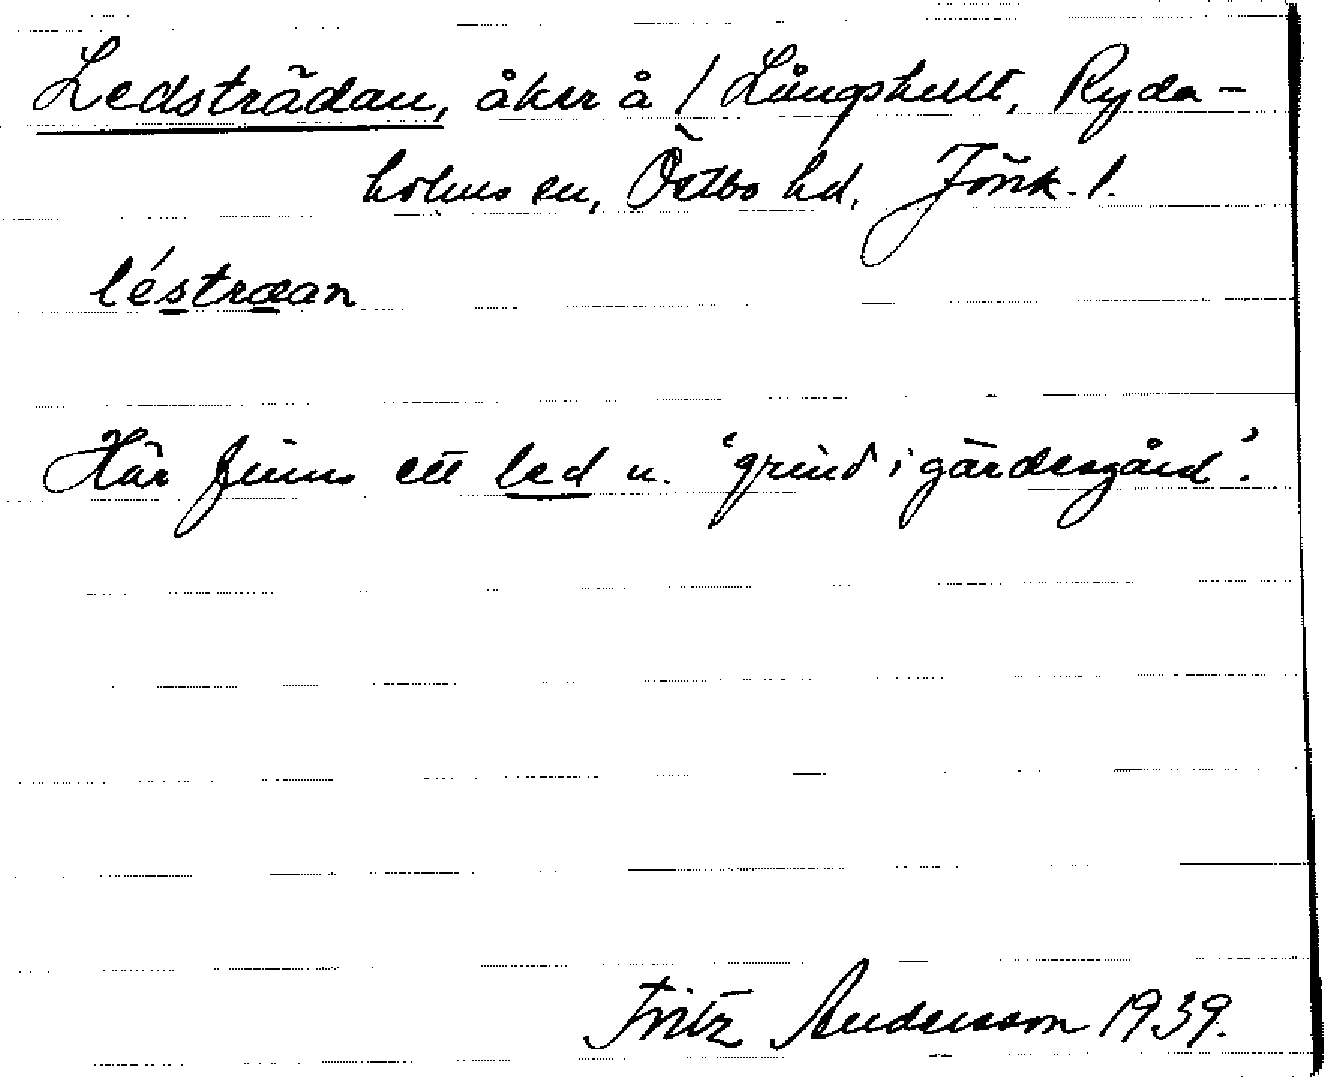 Ledsträdan, åker å 1 Långshult, Ryda-
holms sn, Östbo hd, Jönk. l.
léstræan
Här finns ett led n. 'grind i gärdesgård'.
Fritz Andersson 1939.